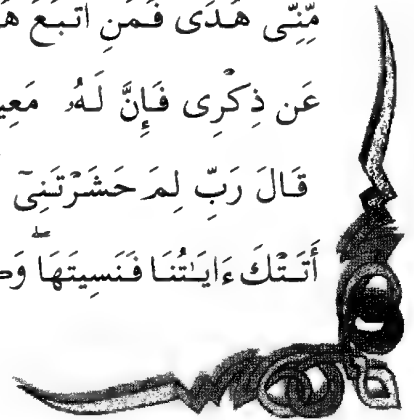 مِّنِّى هُدًى فَمَنِ اتَّبَعَ
عَن ذِكْرِى فَإِنَّ لَهُۥ
قَالَ رَبِّ لِمَ حَشَرْتَنِىٓ
أَتَتْكَ ءَايَـٰتُنَا فَنَسِيتَهَا ۖ